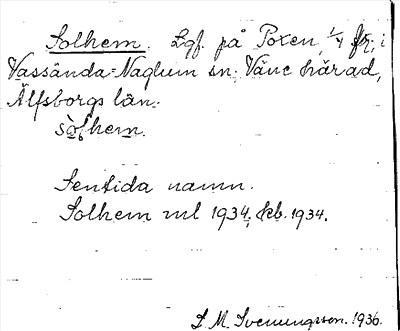 Solhem. Lgf. på Poxen, 1/4 fr; i
Vassända-Naglum sn. Väne härad,
Älfsborgs län.
sòlhem.
Sentida namn.
Solhem ml 1934, kb. 1934.
S. M. Svenungsson. 1936.